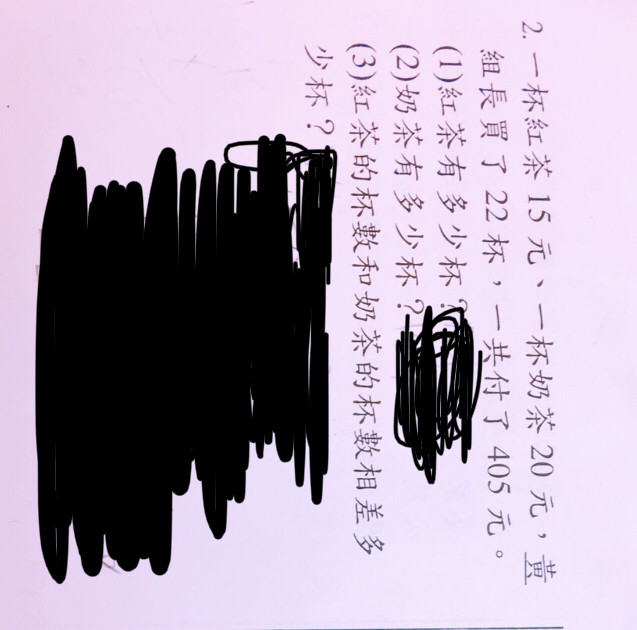 2. 一杯紅茶 15 元、一杯奶茶 20 元，黃
組長買了 22 杯，一共付了 405 元。
(1)紅茶有多少杯？
(2)奶茶有多少杯？
(3)紅茶的杯數和奶茶的杯數相差多
少杯？